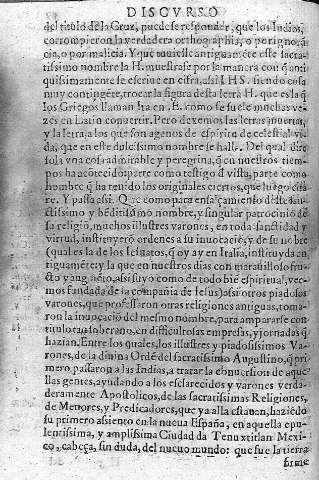 DISCVRSO
del titulo de la Cruz, puedese responder, que los Iudios,
corrompieron la verdadera orthographia, o por ignorã
cia, o por malicia. Y que huuiesse antiguamẽte este sacra-
tissimo nombre la H. muestrase por la manera con q̃ anti-
quissimamente se escriue en cifra, assi IHS. siendo cosa
muy contingẽte, trocar la figura desta letra H. que es la q̃
los Griegos llaman Ita en E. como se suele muchas ve-
zes en Latin conuertir. Pero dexemos las letras muertas,
y la letra, a los que son agenos de espiritu de celestial vi-
da, que en este dulcissimo nombre se halla. Del qual dire
sola vna cosa admirable y peregrina, q̃ en nuestros tiem-
pos ha acõtecido: parte como testigo d̃ vista, parte como
hombre q̃ ha tenido los originales ciertos, que luego cita
re. Y passa assi. Que como para ensalçamiento deste san-
ctissimo y bẽditissimo nombre, y singular patrocinio de
su religiõ, muchos illustres varones, en toda sanctidad y
virtud, instituyerõ ordenes a su inuocaciõ, y de su nõbre
(qual es la de los Iesuatos, q̃ oy ay en Italia, instituyda en
tiguamẽte: y la que en nuestros dias con marauilloso fru-
cto y augmẽto, assi suyo como de todo biẽ espiritual, vee-
mos fundada de la compañia de Iesus) assi otros piadosos
varones, que professaron otras religiones antiguas, toma-
ron la inuocaciõ del mesmo nombre, para ampararse con
titulo tan soberano, en difficultosas empresas, y jornadas q̃
hazian. Entre los quales, los illustres y piadosissimos Va-
rones, de la diuina Ordẽ del sacratissimo Augustino, q̃ pri
mero, passaron a las Indias, a tratar la conuersion de aque
llas gentes, ayudando a los esclarecidos y varones verda-
deramente Apostolicos, de las sacratissimas Religiones,
de Menores, y Predicadores, que ya alla estauan, haziẽdo
su primero assiento en la nueua España, en aquella opu-
lentissima, y amplissima Ciudad da Tenuxtitlan Mexi-
co, cabeça, sin duda, del nueuo mundo: que fue la tierra
firme